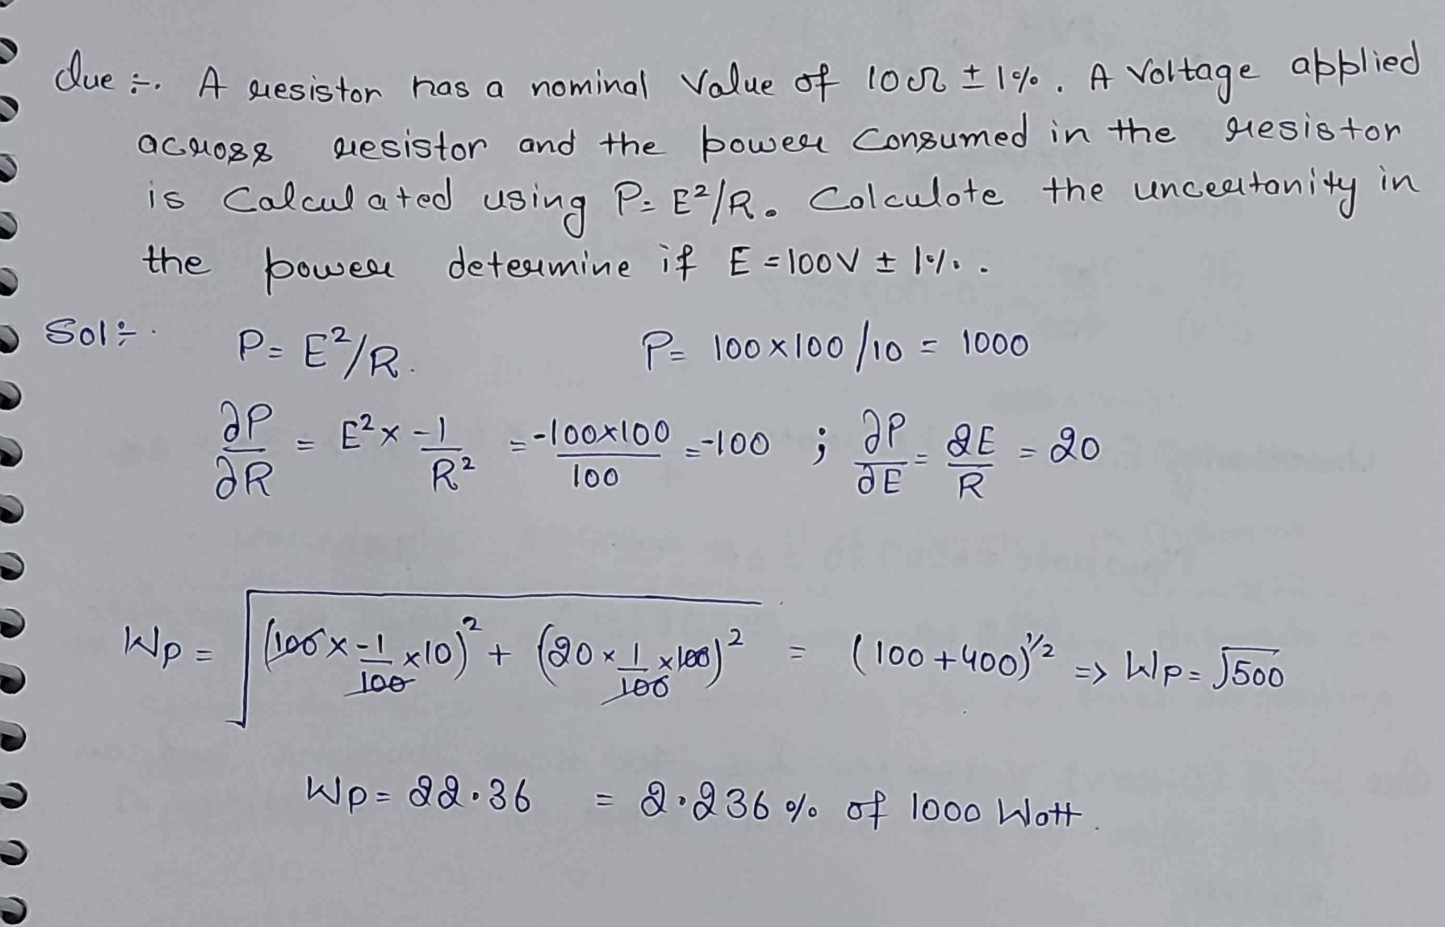 Que :- A resistor has a nominal value of 10Ω ± 1%. A Voltage applied
across resistor and the power consumed in the resistor
is Calculated using P= E²/R. Calculate the uncertanity in
the power determine if E = 100V ± 1%.
Sol :- P= E²/R. P= 100×100/10 = 1000
∂P/∂R = E² × -1/R² = -100×100/100 = -100 ; ∂P/∂E = 2E/R = 20
Wp = √((100 × -1/100 ×10)² + (20 × 1/100 ×100)²) = (100+400)^1/2 => Wp = √500
Wp = 22.36 = 2.236 % of 1000 Watt.